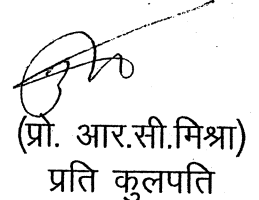 (प्रो. आर.सी.मिश्रा)
प्रति कुलपति